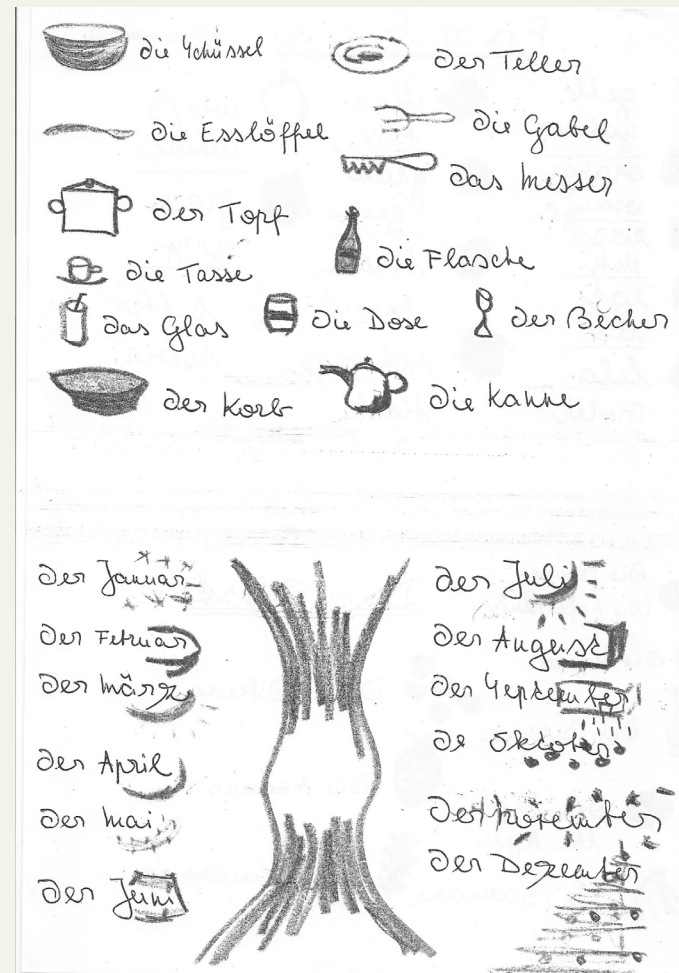 die Schüssel
der Teller
die Esslöffel
die Gabel
das Messer
der Topf
die Flasche
die Tasse
das Glas
die Dose
der Becher
der Korb
die Kanne
der Januar
der Februar
der März
der April
der Mai
der Juni
der Juli
der August
der September
de Oktober
der November
der Dezember